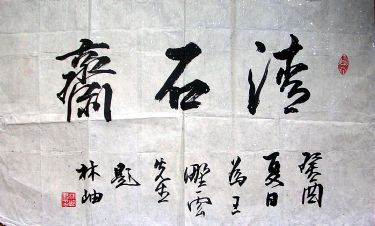 清石齋
癸酉
夏日
為王
野雲
先生
題
林岫